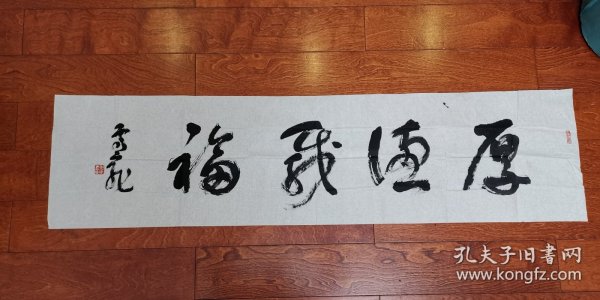 厚德载福
雪龍
孔夫子旧書网
www.kongfz.com